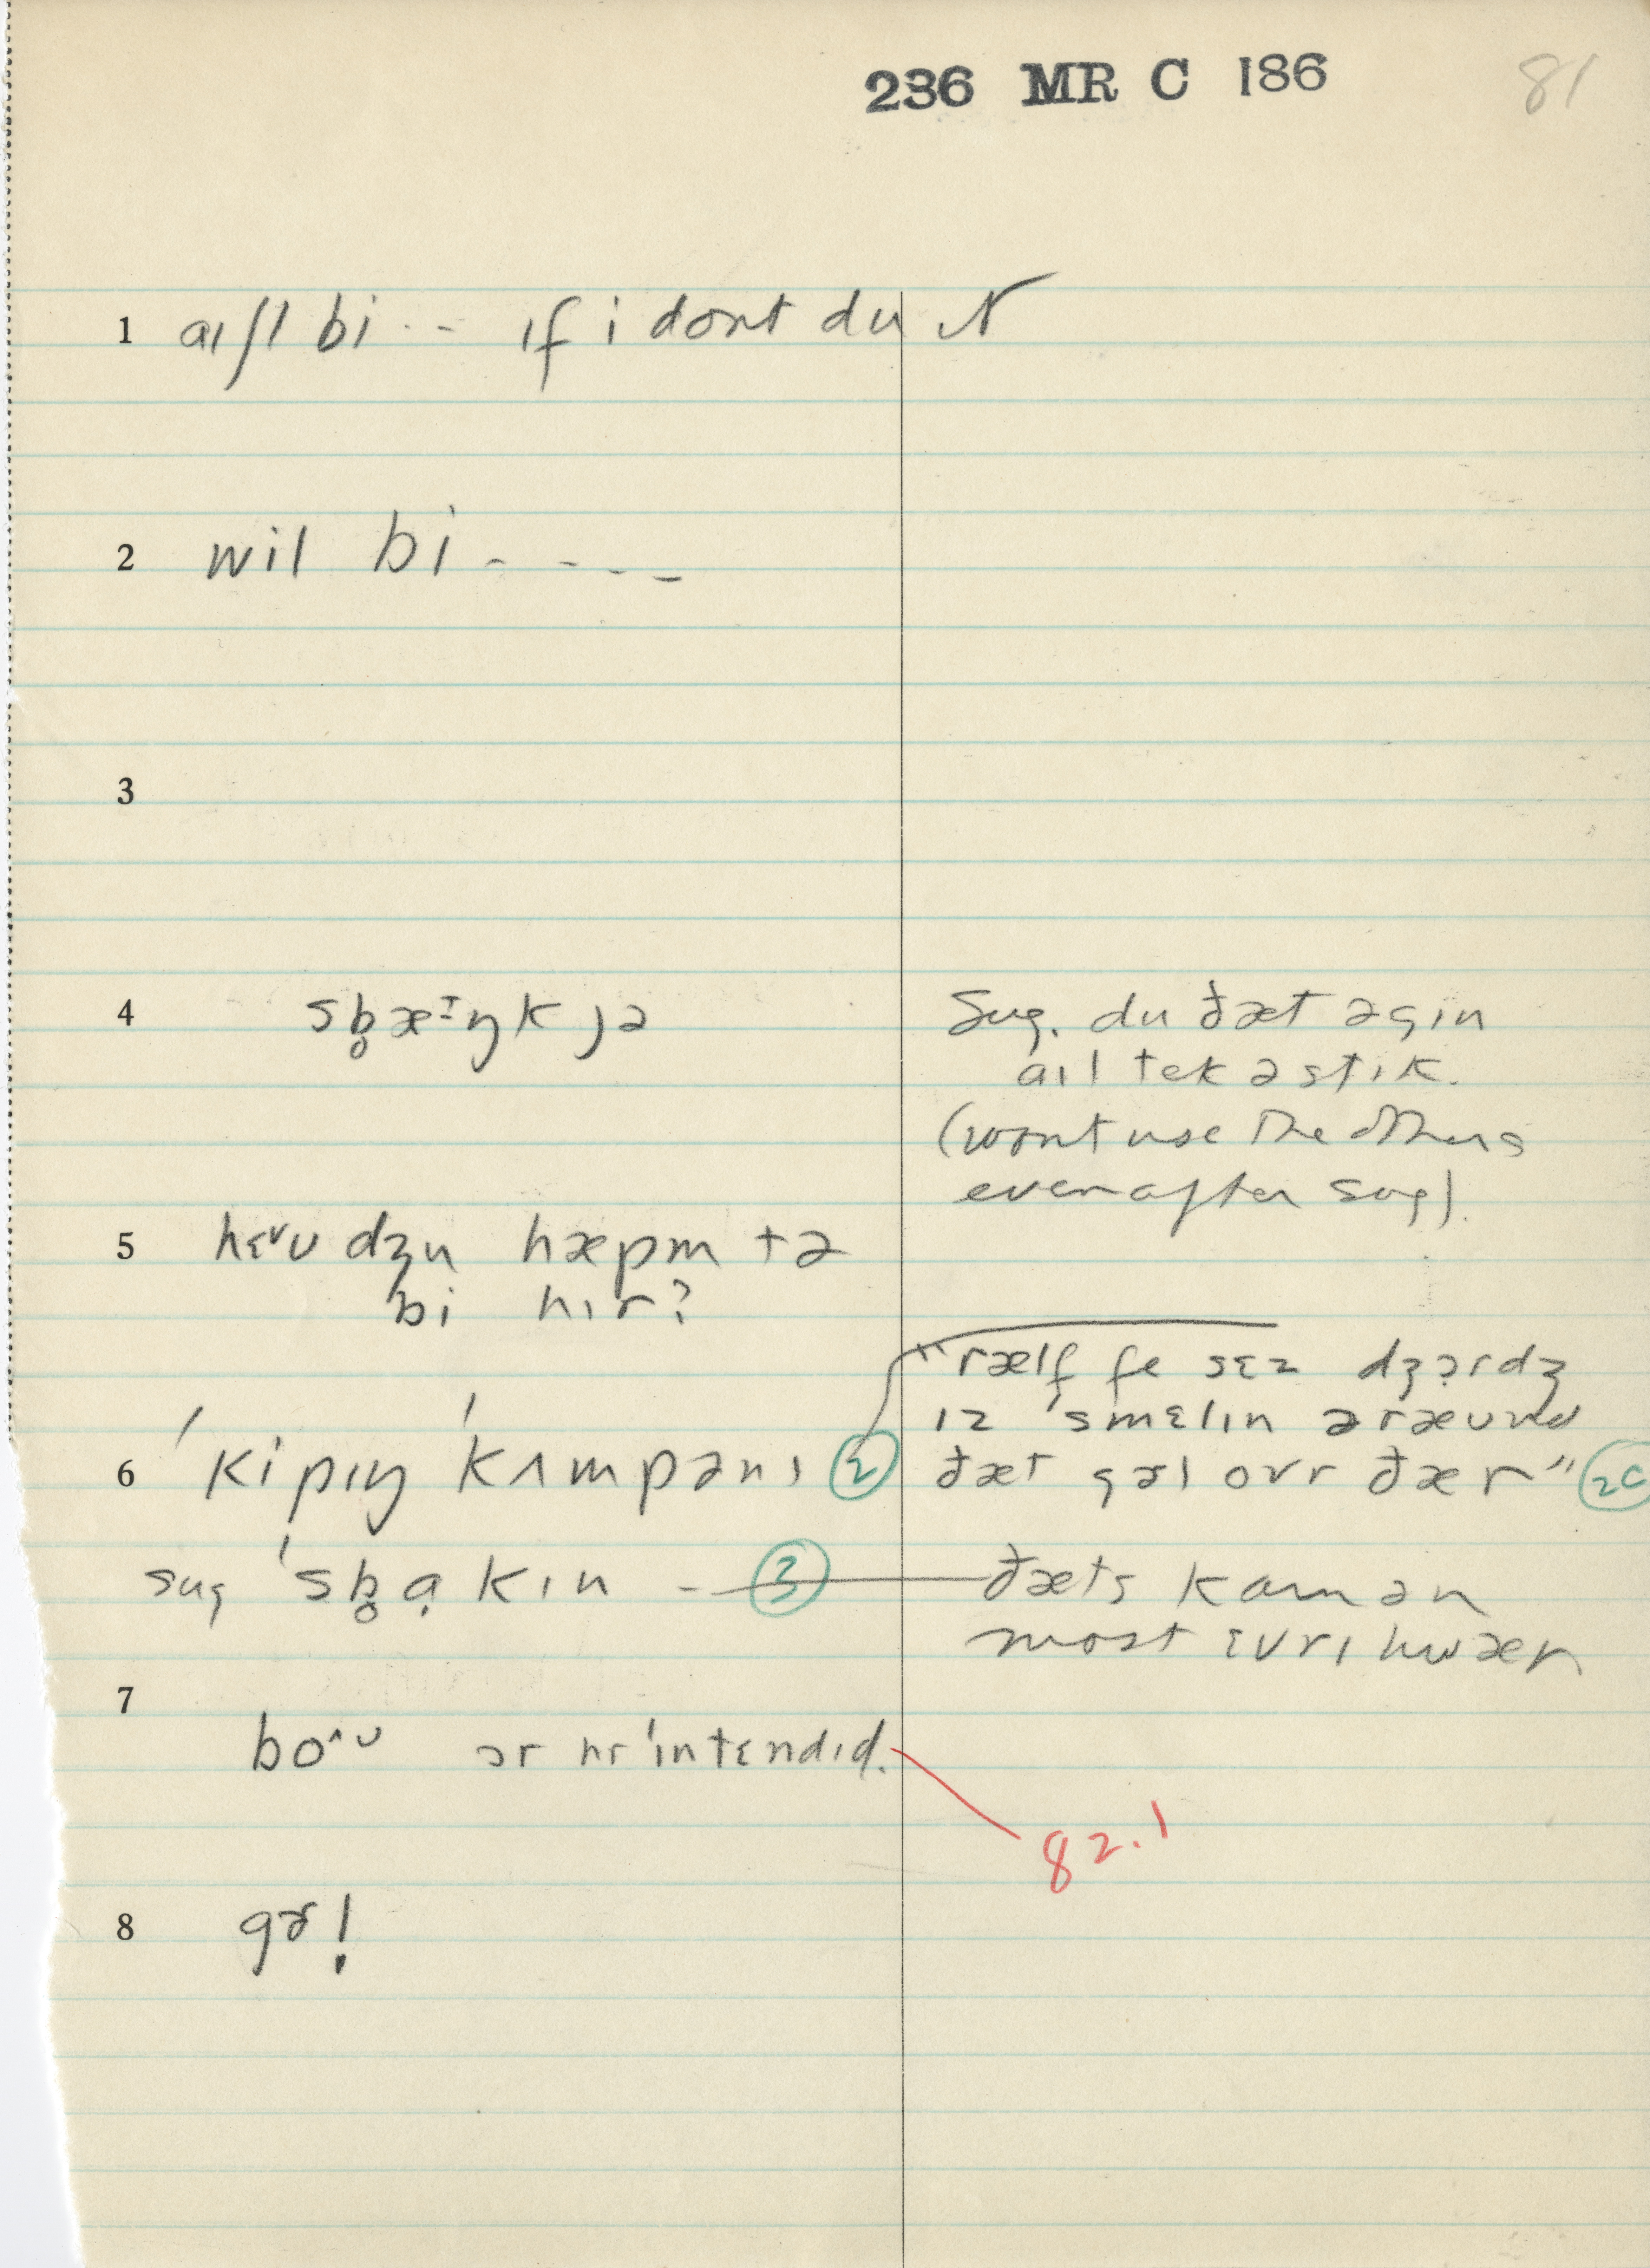 236 MR C 186 81
1 aɪʃl bi .. - ɪf i dont du ɪt
2 wil bi - - - - -
3
4 sb̥æɪŋk jə
Sug. du ðæt əgɪn
aɪl tek ə stɪk.
(wont use the others
even after sug).
5 hɛᵛʊ dʒu hæpm tə
bi hɪr?
"rælf fe sɛz dʒɔrdʒ
ɪz 'smɛlɪn əræʊnd
6 'kipɪŋ 'kʌmpənɪ ②
ðæt gəl ovr ðær" 2C
sug 'sb̥ɑkɪn - ③
ðæts kamən
most ɛvrɪhwær
7
bo^ʊ ər hr 'ɪntɛndɪd.
82.1
8 gɚl!